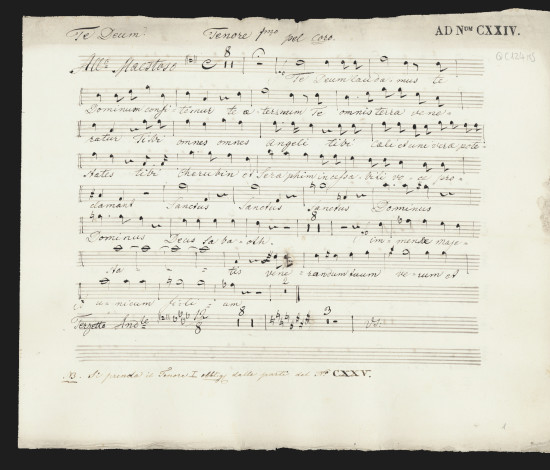 Te Deum Tenore pmo pel Coro. AD Num CXXIV.
All° Maestoso 8 Te Deum lau da - mus te
Dominum confi temur te æ - ternum Te omnis terra vene -
ratur tibi omnes omnes Angeli tibi Cæli et une versæ pote -
states tibi Cherubin et Seraphim incessa - bili vo - ce pro -
clamant Sanctus Sanctus Sanctus Dominus
Dominus Deus Saba - oth. 8
sta - - - tis vene - randum tuum ve - rum et
u - nicum Fili - um 2
Terzetto And.te 8 8 3
NB. Si prenda il Tenore I dalle parti del N° CXXV.